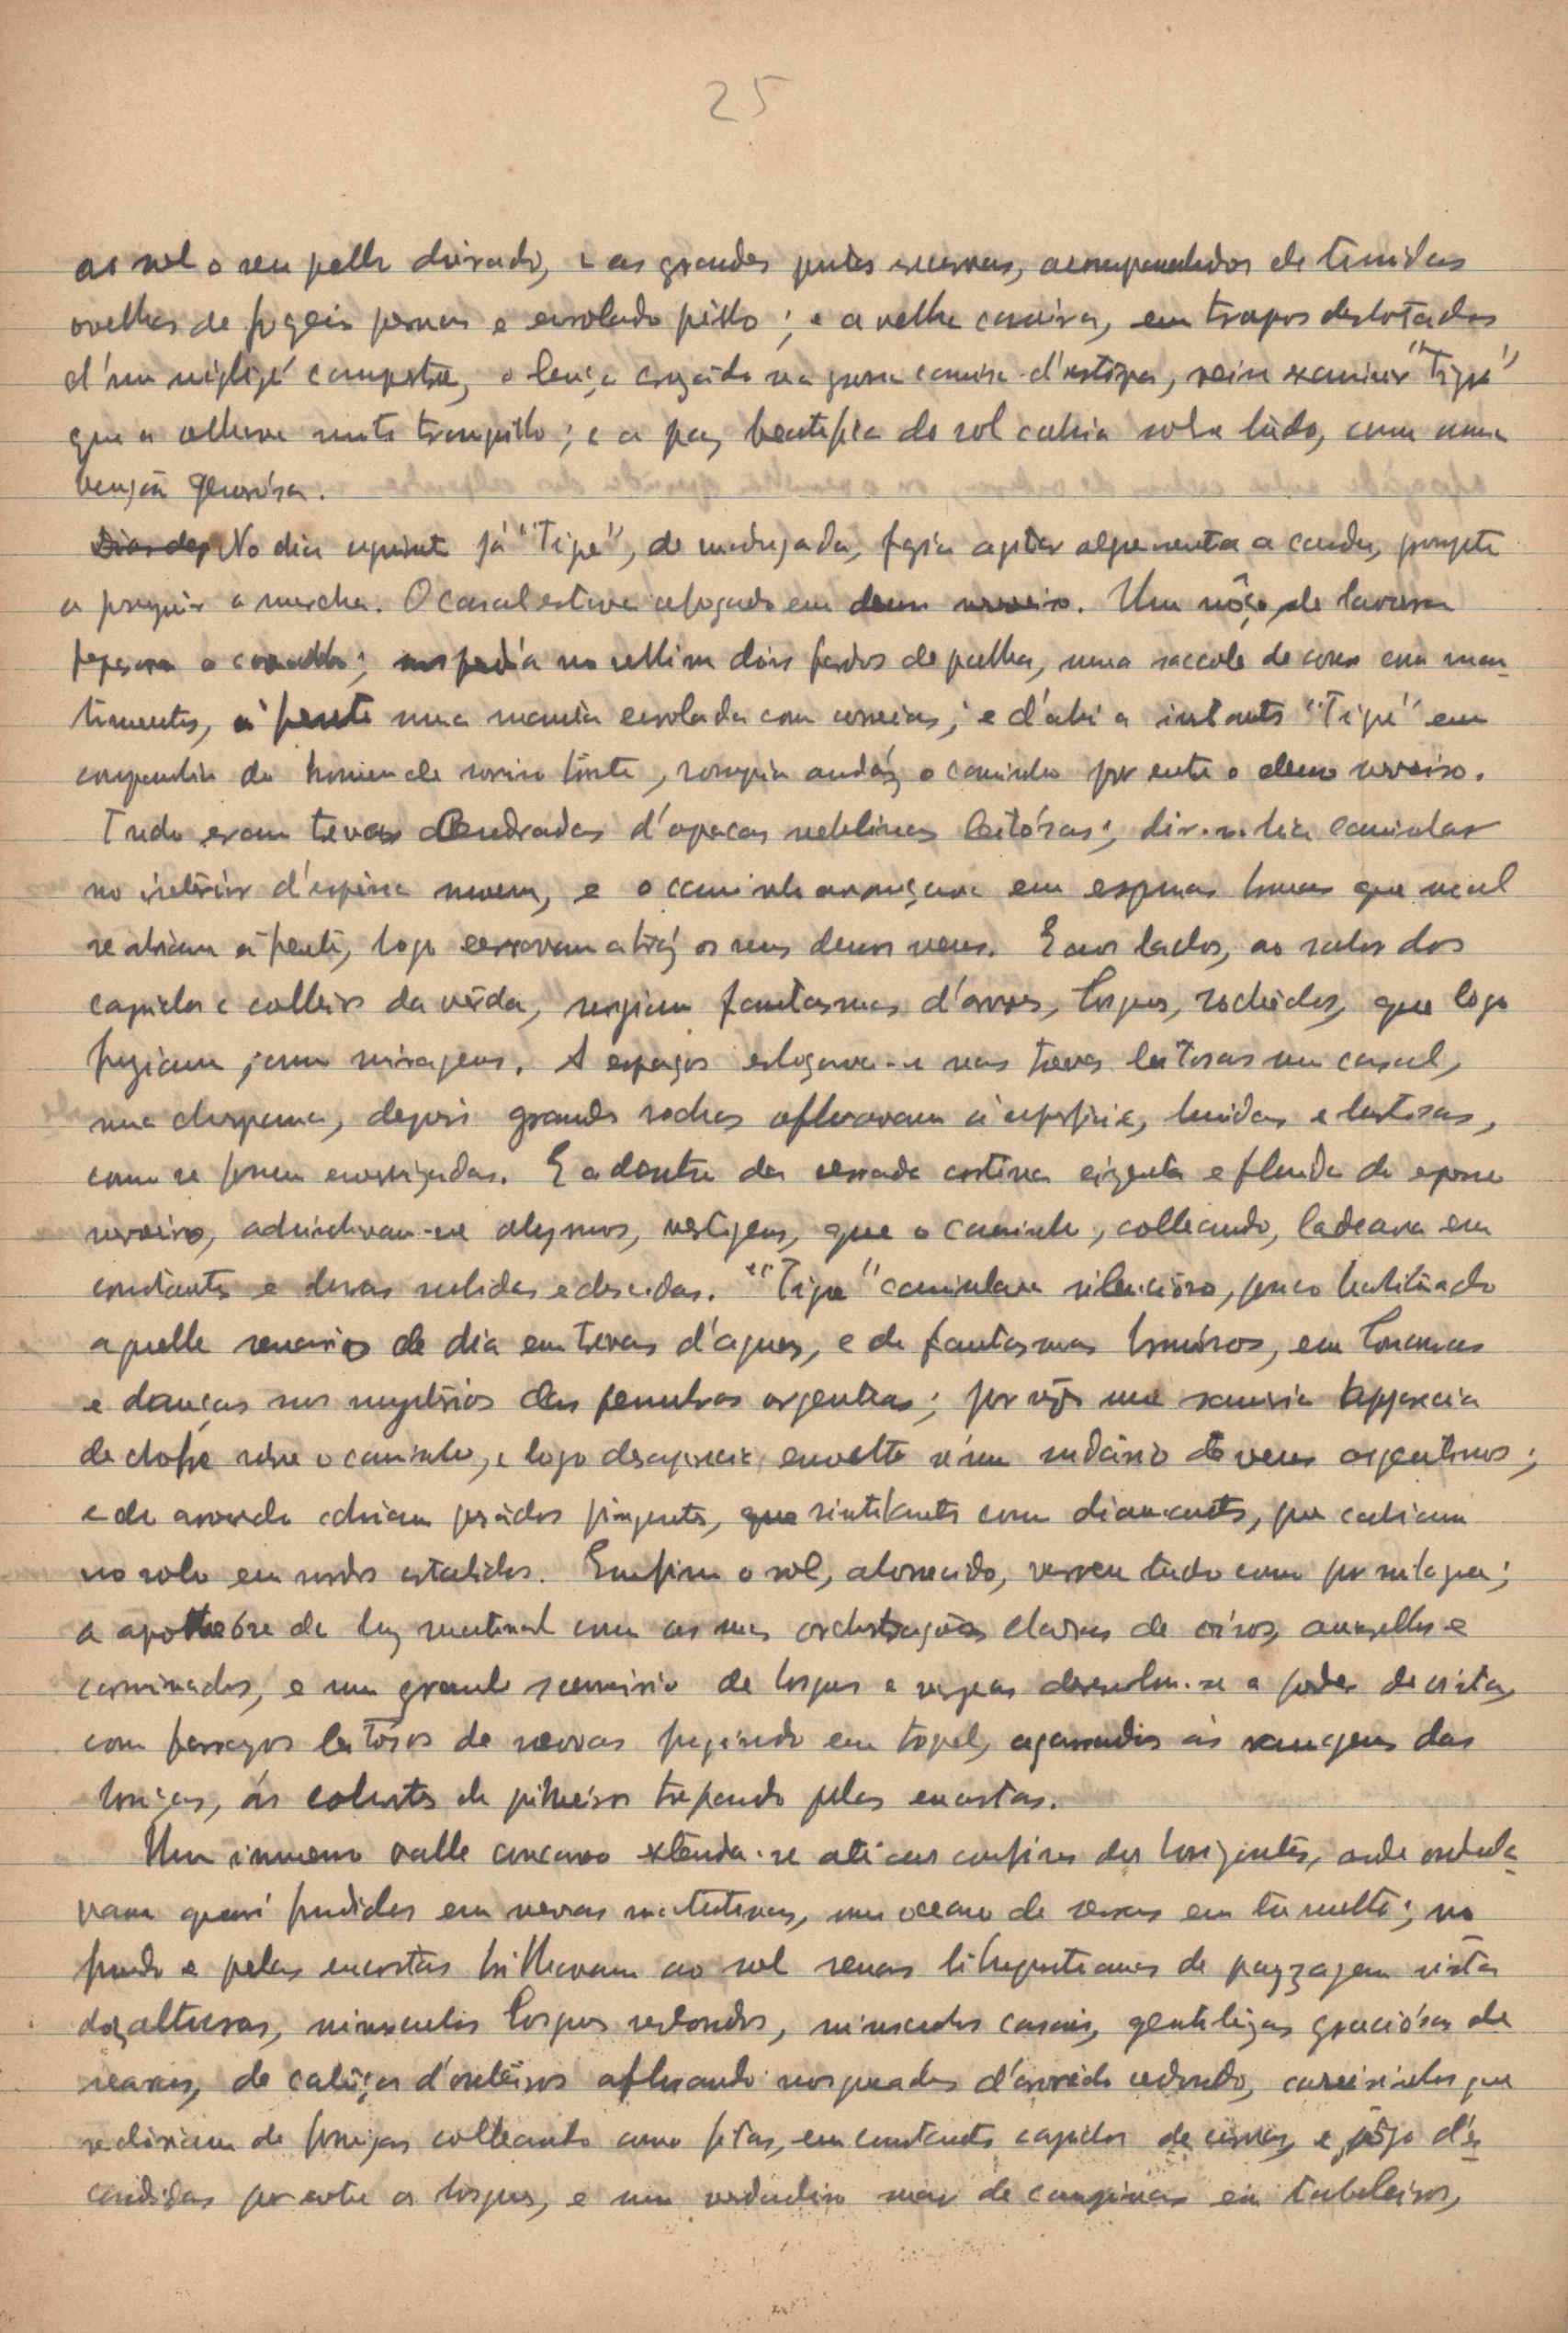 25
ao sol o seu pello doirado, e as grandes pretas acompanhadas de timidas
ovelhas de frageis pernas e enrolado pêllo; e a velha caseira, em trapos desbotados
d'um négligé campestre, o lenço cruzado na grossa camisa d'estopa, veiu examinar "Tipé"
que a olhava muito tranquillo; e a paz beatifica do sol cahia sobre tudo, como uma
benção generósa.
No dia seguinte já "Tipé", de madrugada, fazia agitar alegremente a cauda, prompto
a proseguir a marcha. O casal estava afogado em denso nevoeiro. Um môço de lavoura
pegara o cavallo; no sellim dois fardos de palha, uma saccola de couro com man-
timentos, á frente uma manta enrolada com correias; e d'ahi a instantes "Tipé" em
companhia do homem de sorriso triste, rompia audáz o caminho por entre o denso nevoeiro.
Tudo eram trevas d'opacas neblinas leitósas; dir-se-hia caminhar
no interior d'espessa nuvem, e o caminho avançava em espumas brancas que mal
se abriam á frente, logo cerravam atráz os seus densos veus. E aos lados, ao sabor dos
caprichos e colleios da vereda, surgiam fantasmas d'arvores, bosques, rochedos, que logo
fugiam como miragens. A espaços esboçava-se nas trevas leitosas um casal,
uma choupana, depois grandes rochas afloravam á superficie, humidas e lustrosas,
como se fossem envernizadas. E adentro da cerrada cortina cinzenta e fluida do espesso
nevoeiro, adivinhavam-se abysmos, vertigens, que o caminho, colleando, ladeava em
constantes e duras subidas e descidas. "Tipé" caminhava silencioso, pouco habituado
aquelle scenario de dia em trevas d'aguas, e de fantasmas brumosos, em
e danças nos mysterios das penumbras argenteas; por vezes uma ramaria apparecia
de chofre sobre o caminho, e logo desaparecia envolta n'um sudario de veus argentinos;
e do arvoredo cahiam pesados pingentes, scintillantes como diamantes, que cahiam
no solo em surdos estalidos. Emfim o sol, aborrecido, varreu tudo como por milagre;
a apothéose da luz matinal com as suas orchestrações claras de oiros, amarellos e
carminados, e um grande scenario de bosques e varzeas desenrolou-se a perder de vista,
com farrapos leitosos de nevoas fugindo em tropel, agarrados ás ramagens das
ás cohortes de pinheiros trepando pelas encostas.
Um immenso valle concavo extendia-se até aos confins dos horizontes, onde ondula-
vam quasi perdidos em nevoas matutinas, um oceano de serras em tumulto; no
fundo e pelas encostas brilhavam ao sol scenas liliputianas de payzagem vista
das alturas, minusculos bosques redondos, minusculos casais, gentilezas graciósas de
searas, de cabeços d'outeiros aflorando nos d'arvoredo redondo, caminhos que
se diriam de formigas colleando como fitas, em constantes caprichos de curvas, e jôgo d'és-
condidas por entre os bosques, e um verdadeiro mar de campinas em taboleiros,